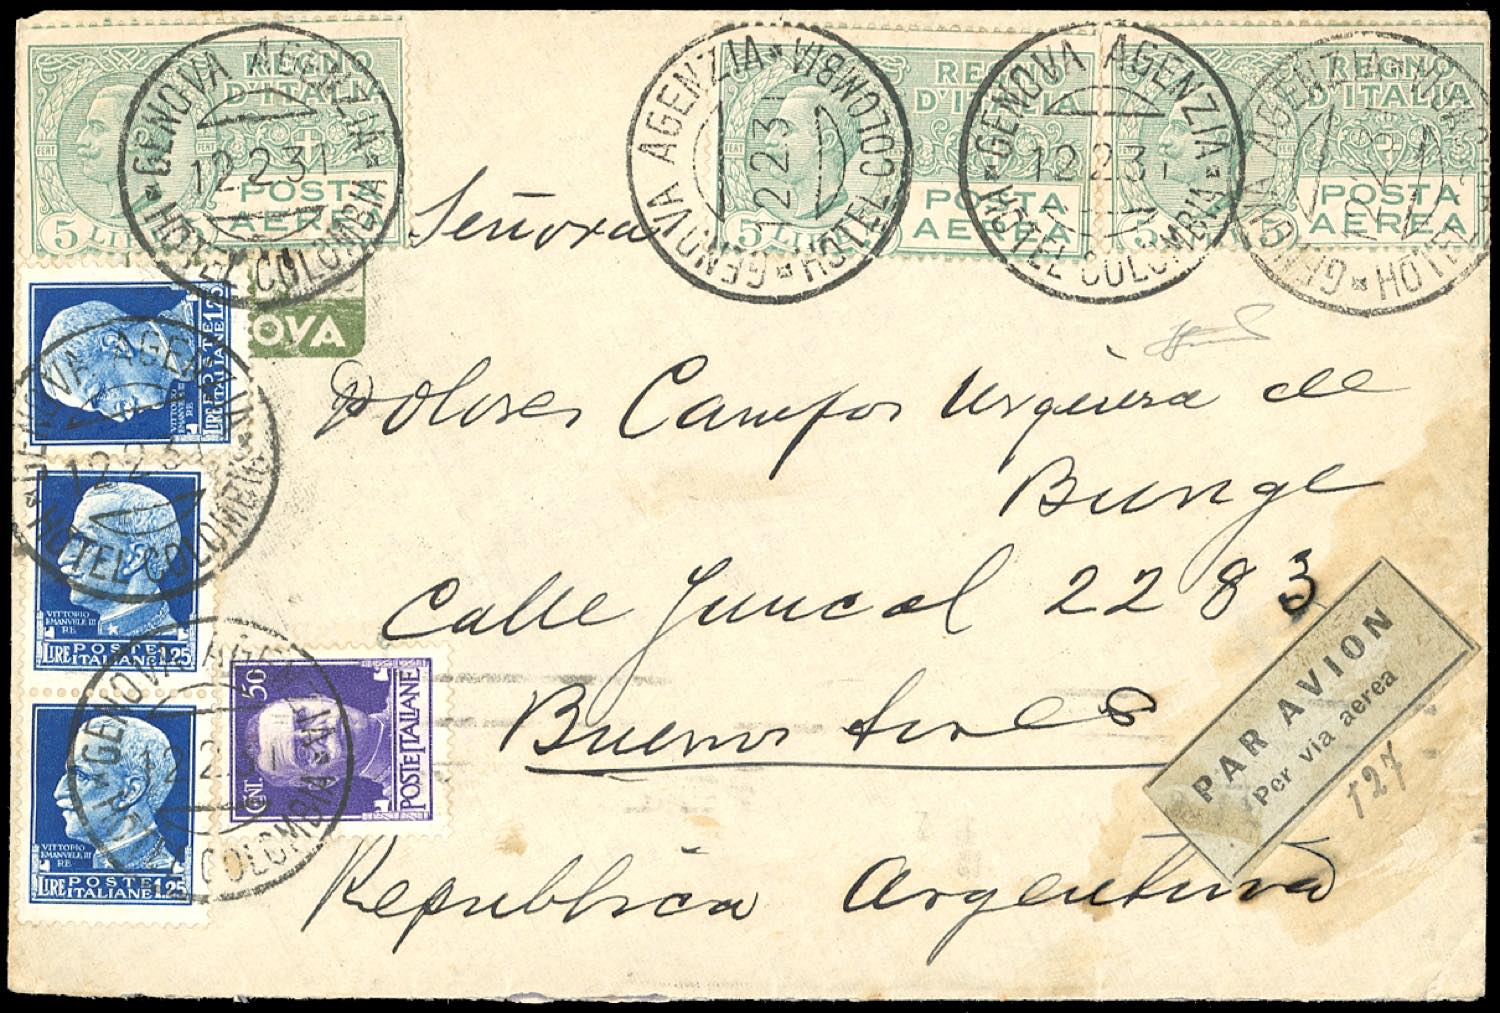 REGNO D'ITALIA
POSTA AEREA
5 LIRE
GENOVA AGENZIA
HOTEL COLOMBIA
12.2.31
REGNO D'ITALIA
POSTA AEREA
5 LIRE
GENOVA AGENZIA
HOTEL COLOMBIA
12.2.31
REGNO D'ITALIA
POSTA AEREA
GENOVA AGENZIA
HOTEL COLOMBIA
12.2.31
GENOVA AGENZIA
HOTEL
OVA
Señora
Dolores Campos Urquiza de
Bunge
Calle Juncal 2283
Buenos Aires
Republica Argentina
POSTE ITALIANE
LIRE 1.25
VITTORIO EMANUELE III RE
GENOVA AGENZIA
HOTEL COLOMBIA
VITTORIO
EMANVELE III
RE
LIRE POSTE ITALIANE 1.25
VITTORIO
EMANVELE III
RE
LIRE POSTE ITALIANE 1.25
GENOVA AGENZIA
HOTEL COLOMBIA
CENT. 50
POSTE ITALIANE
PAR AVION
Per via aerea
127